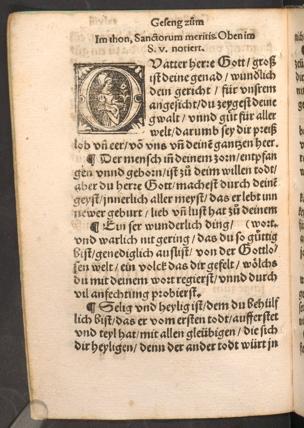 Geseng zům
Im thon, Sanctorum meritis. Oben im
S. v. notiert.
O Vatter herre Gott / groß
ist deine genad / wundlich
dein gericht / für vnsrem
angesicht / du zeygest deine
gwalt / vnnd güt für aller
welt / darumb sey dir preiß
lob vñ eer / võ vns vñ deinẽ gantzen heer.
¶ Der mensch in deinem zorn / entpfan
gen vnnd geborn / ist zů deim willen todt /
aber du herre Gott / machest durch deinẽ
geyst / innerlich aller meyst / das er lebt inn
newer geburt / lieb vñ lust hat zů deinem
¶ Ein ser wunderlich ding / (wort.
vnd warlich nit gering / das du so güttig
bist / genediglich auflist / von der Gottlo/
sen welt / ein volck das dir gefelt / wölchs
du mit deinem wott regierst / vnnd durch
vil anfechtung probierst.
¶ Selig vnd heylig ist / dem du behülf
lich bist / das er vom ersten todt / aufferstet
vnd teyl hat / mit allen gleübigen / die sich
dir heyligen / denn der ander todt würt jn